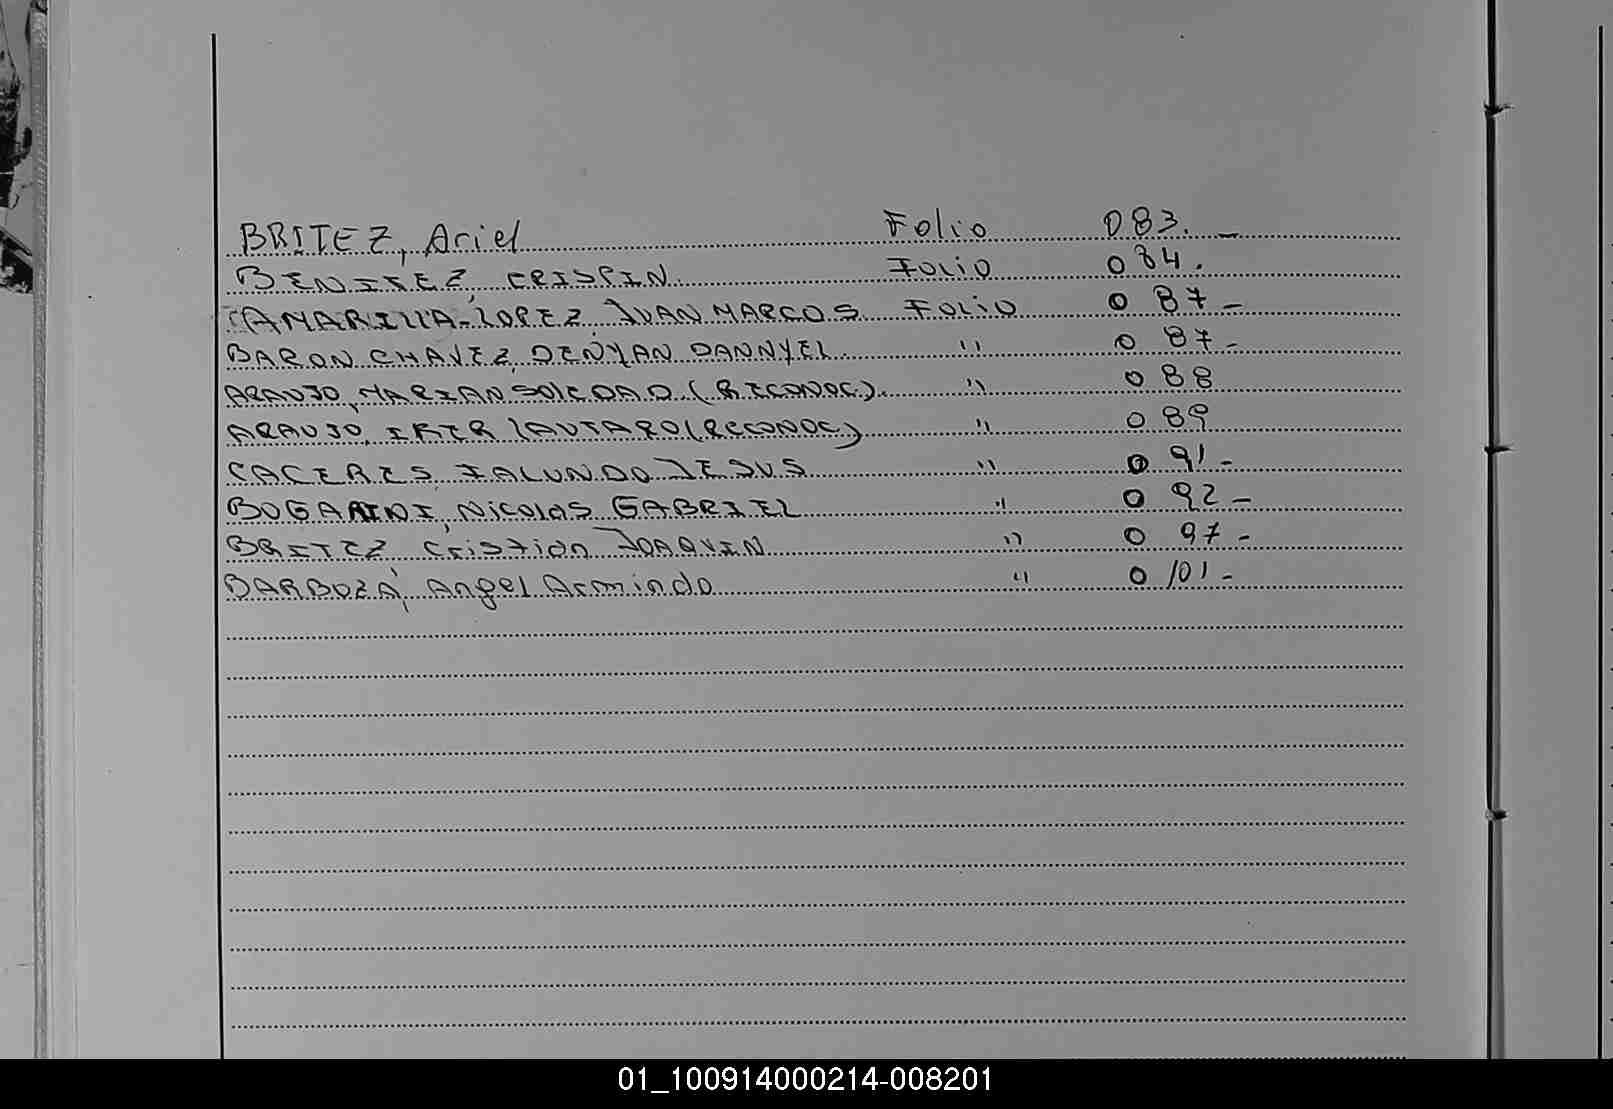 BRITEZ, Ariel Folio 083. _
BENITEZ, CRISPIN. FOLIO 084.
AMARILLA-LOPEZ, JUAN MARCOS FOLIO 087-
BARON CHAVEZ, DENYAN DANNYEL. " 087-
ARAUJO, MARIAN SOLEDAD (RECONOC). " 088
ARAUJO, IKER LAUTARO (RECONOC) " 089
CACERES, FACUNDO JESUS " 091-
NICOLAS GABRIEL " 092-
BRITEZ Cristian JOAQUIN " 097-
BARBOZA, Angel Armindo " 0101-
01_100914000214-008201